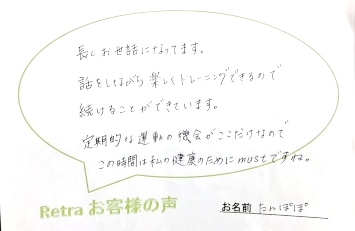 長くお世話になってます。
話をしながら楽しくトレーニングできるので
続けることができています。
定期的な運動の機会がここだけなので
この時間は私の健康のためにmustですね。
Retra お客様の声
お名前 たんぽぽ